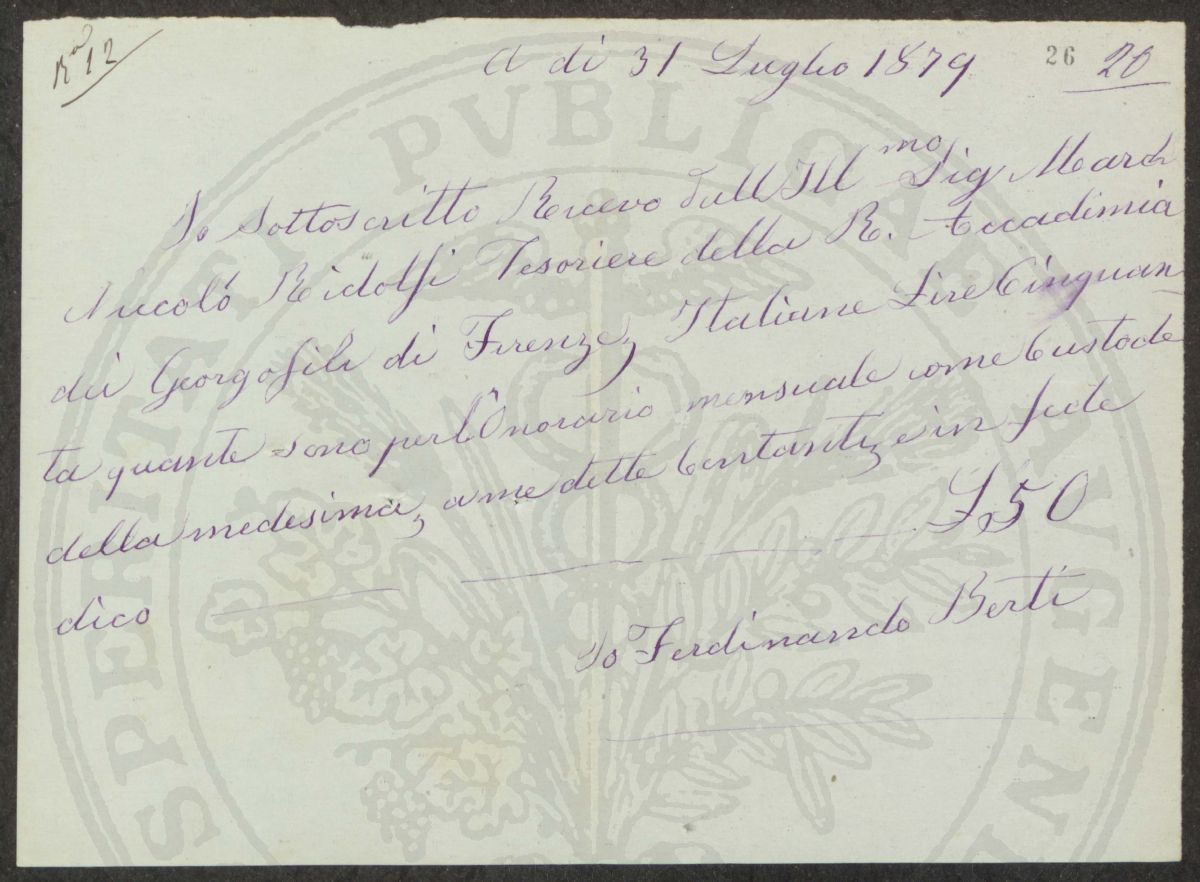 R.ta 12
A di 31 Luglio 1879 26 20
Io Sottoscritto Ricevo dall Ill mo Sig. March
Niccoló Ridolfi Tesoriere della R. Accadimia
dei Georgofili di Firenze, Italiane Lire Cinquan
ta quante sono per l'Onorario mensuale come Custode
della medesima, a me dette Contanti, e in fede
dico £50
Io Ferdinando Berti
PROSPERITATI PVBLICAE AVGENDAE